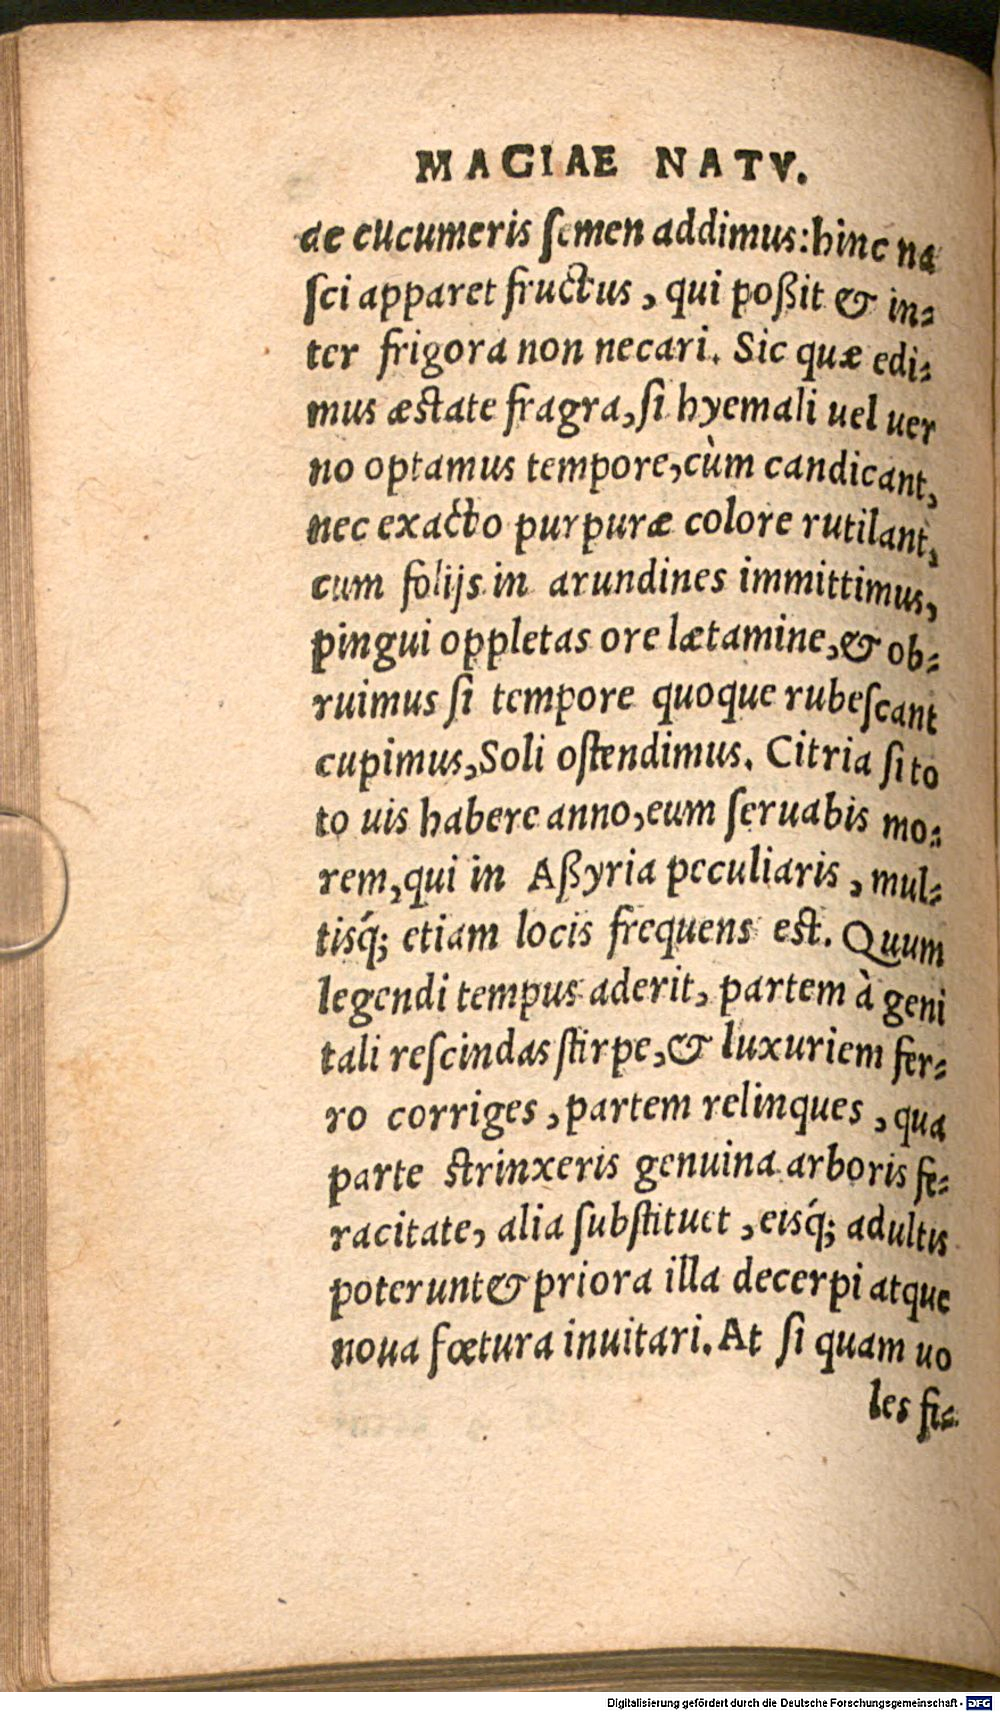 MAGIAE NATV.
de cucumeris semen addimus: hinc na
sci apparet fructus, qui poßit & in-
ter frigora non necari. Sic quæ edi-
mus æstate fragra, si hyemali uel uer
no optamus tempore, cùm candicant,
nec exacto purpuræ colore rutilant,
cum folijs in arundines immittimus,
pingui oppletas ore lætamine, & ob-
ruimus si tempore quoque rubescant
cupimus, Soli ostendimus. Citria si to
to uis habere anno, eum seruabis mo-
rem, qui in Aßyria peculiaris, mul-
tisq́; etiam locis frequens est. Quum
legendi tempus aderit, partem à geni
tali rescindas stirpe, & luxuriem fer-
ro corriges, partem relinques, qua
parte strinxeris genuina arboris fe-
racitate, alia substituet, eisq́; adultis
poterunt & priora illa decerpi atque
noua fœtura inuitari. At si quam uo
les fi-
Digitalisierung gefördert durch die Deutsche Forschungsgemeinschaft - DFG